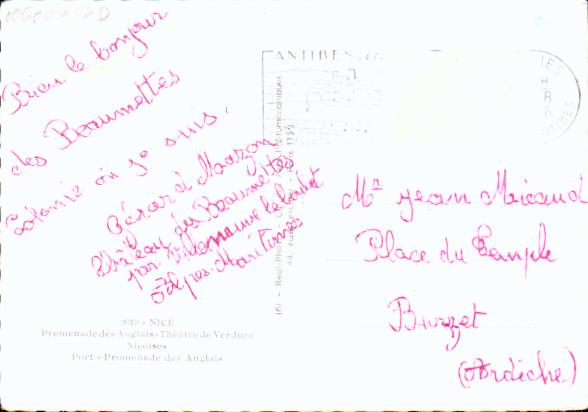 Bien le bonjour
des Beaumettes
Colonie où je suis.
Gérard Mazon
Château des Beaumettes
par Villeneuve le Loubet
Alpes-Maritimes
2019 - NICE
Promenade des Anglais-Théâtre de Verdure
Nicoises
Port - Promenade des Anglais
ANTIBES
Mr Jean Micaud
Place du Temple
Burzet
(Ardèche)